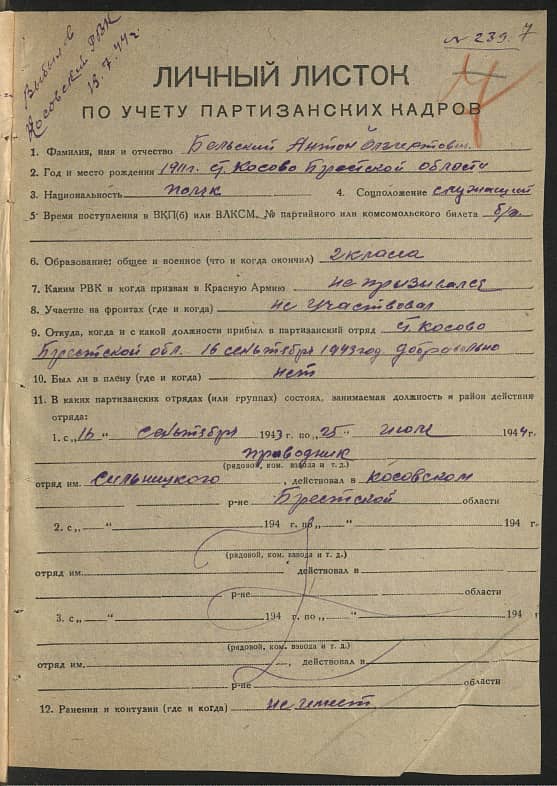 № 239. 7
Выбыл в
Косовский РВК
15.7.44 г.
ЛИЧНЫЙ ЛИСТОК
ПО УЧЕТУ ПАРТИЗАНСКИХ КАДРОВ
1. Фамилия, имя и отчество Бельский Антон
2. Год и место рождения 1911г. ст. Косово Брестской области
3. Национальность поляк 4. Соцположение служащий
5 Время поступления в ВКП(б) или ВЛКСМ, № партийного или комсомольского билета б/п.
6. Образование: общее и военное (что и когда окончил) 2 класса
7. Каким РВК и когда призван в Красную Армию не призывался
8. Участие на фронтах (где и когда) не участвовал
9. Откуда, когда и с какой должности прибыл в партизанский отряд ст. Косово
Брестской обл. 16 сентября 1943 год добровольно
10. Был ли в плену (где и когда) нет
11. В каких партизанских отрядах (или группах) состоял, занимаемая должность и район действия
отряда:
1. с „16“ сентября 1943 г. по „25“ июля 1944 г.
проводник
(рядовой, ком. взвода и т. д.)
отряд им. Сильницкого, действовал в Косовском
р-не Брестской области
2. с „ “ 194 г. по „ “ 194 г.
(рядовой, ком. взвода и т. д.)
отряд им. действовал в
р-не области
3. с „ “ 194 г. по „ “ 194 г
(рядовой, ком. взвода и т. д.)
отряд им. , действовал в
р-не области
12. Ранения и контузии (где и когда) не имеет